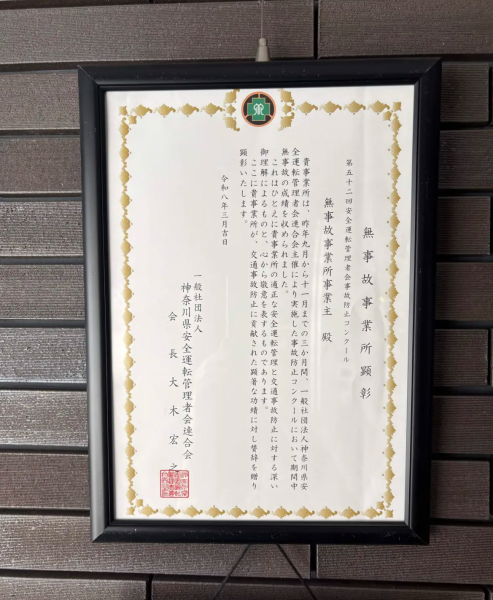 無事故事業所顕彰
第五十二回安全運転管理者会事故防止コンクール
無事故事業所事業主 殿
貴事業所は、昨年九月から十一月までの三か月間、一般社団法人神奈川県安
全運転管理者会連合会主催により実施した事故防止コンクールにおいて期間中
無事故の成績を収められました。
これはひとえに貴事業所の適正な安全運転管理と交通事故防止に対する深い
御理解によるものと、心から敬意を表するものであります。
ここに貴事業所が、交通事故防止に貢献された顕著な功績に対し賛辞を贈り
顕彰いたします。
令和八年三月吉日
一般社団法人
神奈川県安全運転管理者会連合会
会長 大木宏之